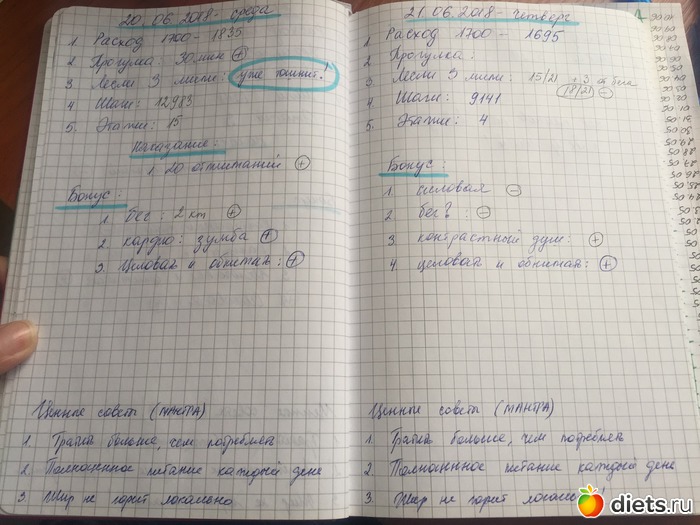 20.06.2018 - среда
1. Расход 1700 - 1835
2 Прогулка: 30 мин +
3 Лесли 3 мили: уже тошнит!
4 Шаги: 12983
5. Этажи: 15
Наказание:
1. 20 отжиманий +
Бонус:
1. бег: 2 км +
2. кардио: зумба +
3. целовак и обнимак: +
Ценные советы (МАНТРА)
1. Тратить больше, чем потреблять
2. Полноценное питание каждый день
3. Жир не горит локально
21.06.2018 - четверг
1. Расход 1700 - 1695
2 Прогулка:
3 Лесли 3 мили: 15/21 +3 от бега
18/21 -
4 Шаги: 9141
5. Этажи: 4
Бонус:
1. силовая -
2. бег? -
3 контрастный душ: +
4. целовак и обнимак: +
Ценные советы (МАНТРА)
1. Тратить больше, чем потреблять
2. Полноценное питание каждый день
3. Жир не горит
diets.ru